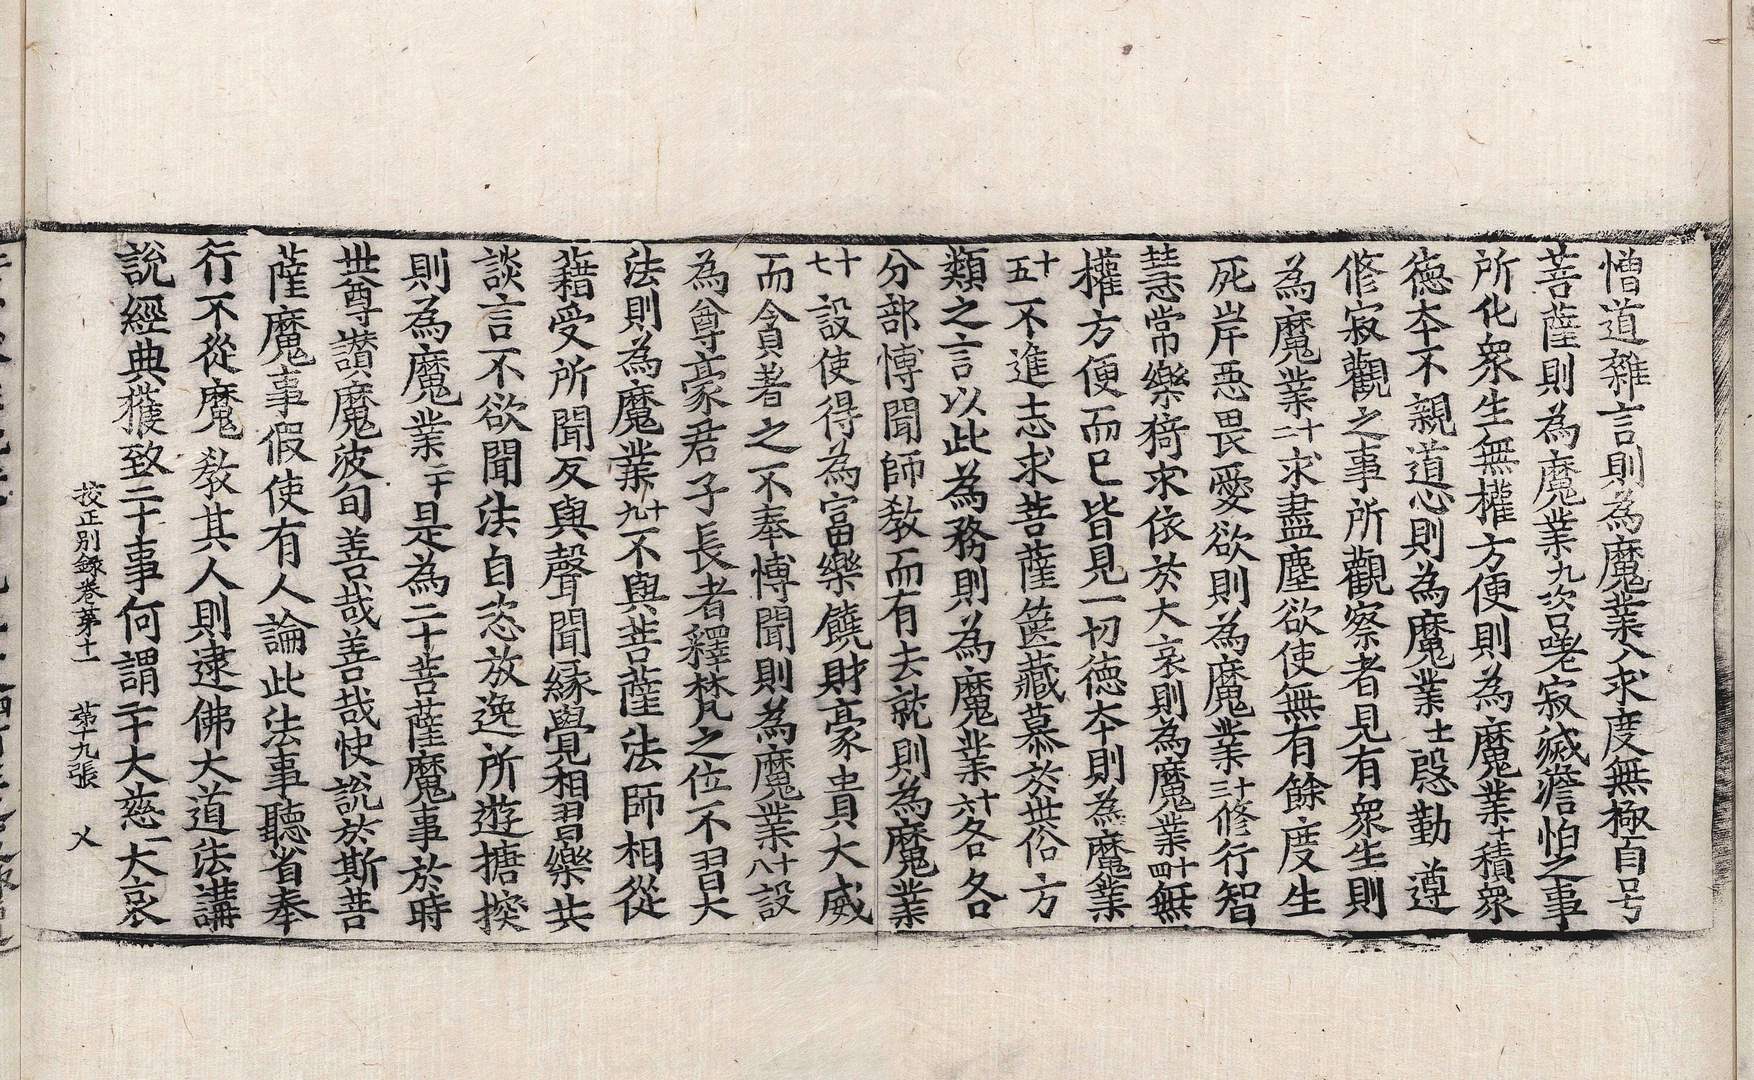 憎道雜言則為魔業八求度無極百号
菩薩則為魔業九次吿嗟寂滅澹怕之事
所化衆生無權方便則為魔業十積衆
德夲不親道心則為魔業十一慇勤遵
修寂觀之事所觀察者見有衆生則
為魔業十二求盡塵欲使無有餘度生
死岸惡畏愛欲則為魔業十三修行智
慧常樂猗求依於大哀則為魔業十四無
權方便而已皆見一切德夲則為魔業
十五不進志求菩薩篋藏慕於世俗方
類之言以此為務則為魔業十六各各
分部愽聞師教而有去就則為魔業
十七設使得為富樂饒財豪貴大威
而貪著之不奉愽聞則為魔業十八設
為尊豪君子長者釋梵之位不習大
法則為魔業十九不與菩薩法師相從
藉受所聞反與聲聞緣覺相習樂共
談言不欲聞法自恣放逸所遊搪揬
則為魔業二十是為二十菩薩魔事於時
世尊讃魔波旬善哉善哉快說於斯菩
薩魔事假使有人論此法事聽省奉
行不從魔教其人則逮佛大道法講
說經典獲致二十事何謂二十大慈一大哀
挍正別録卷苐十一　苐十九張　乂